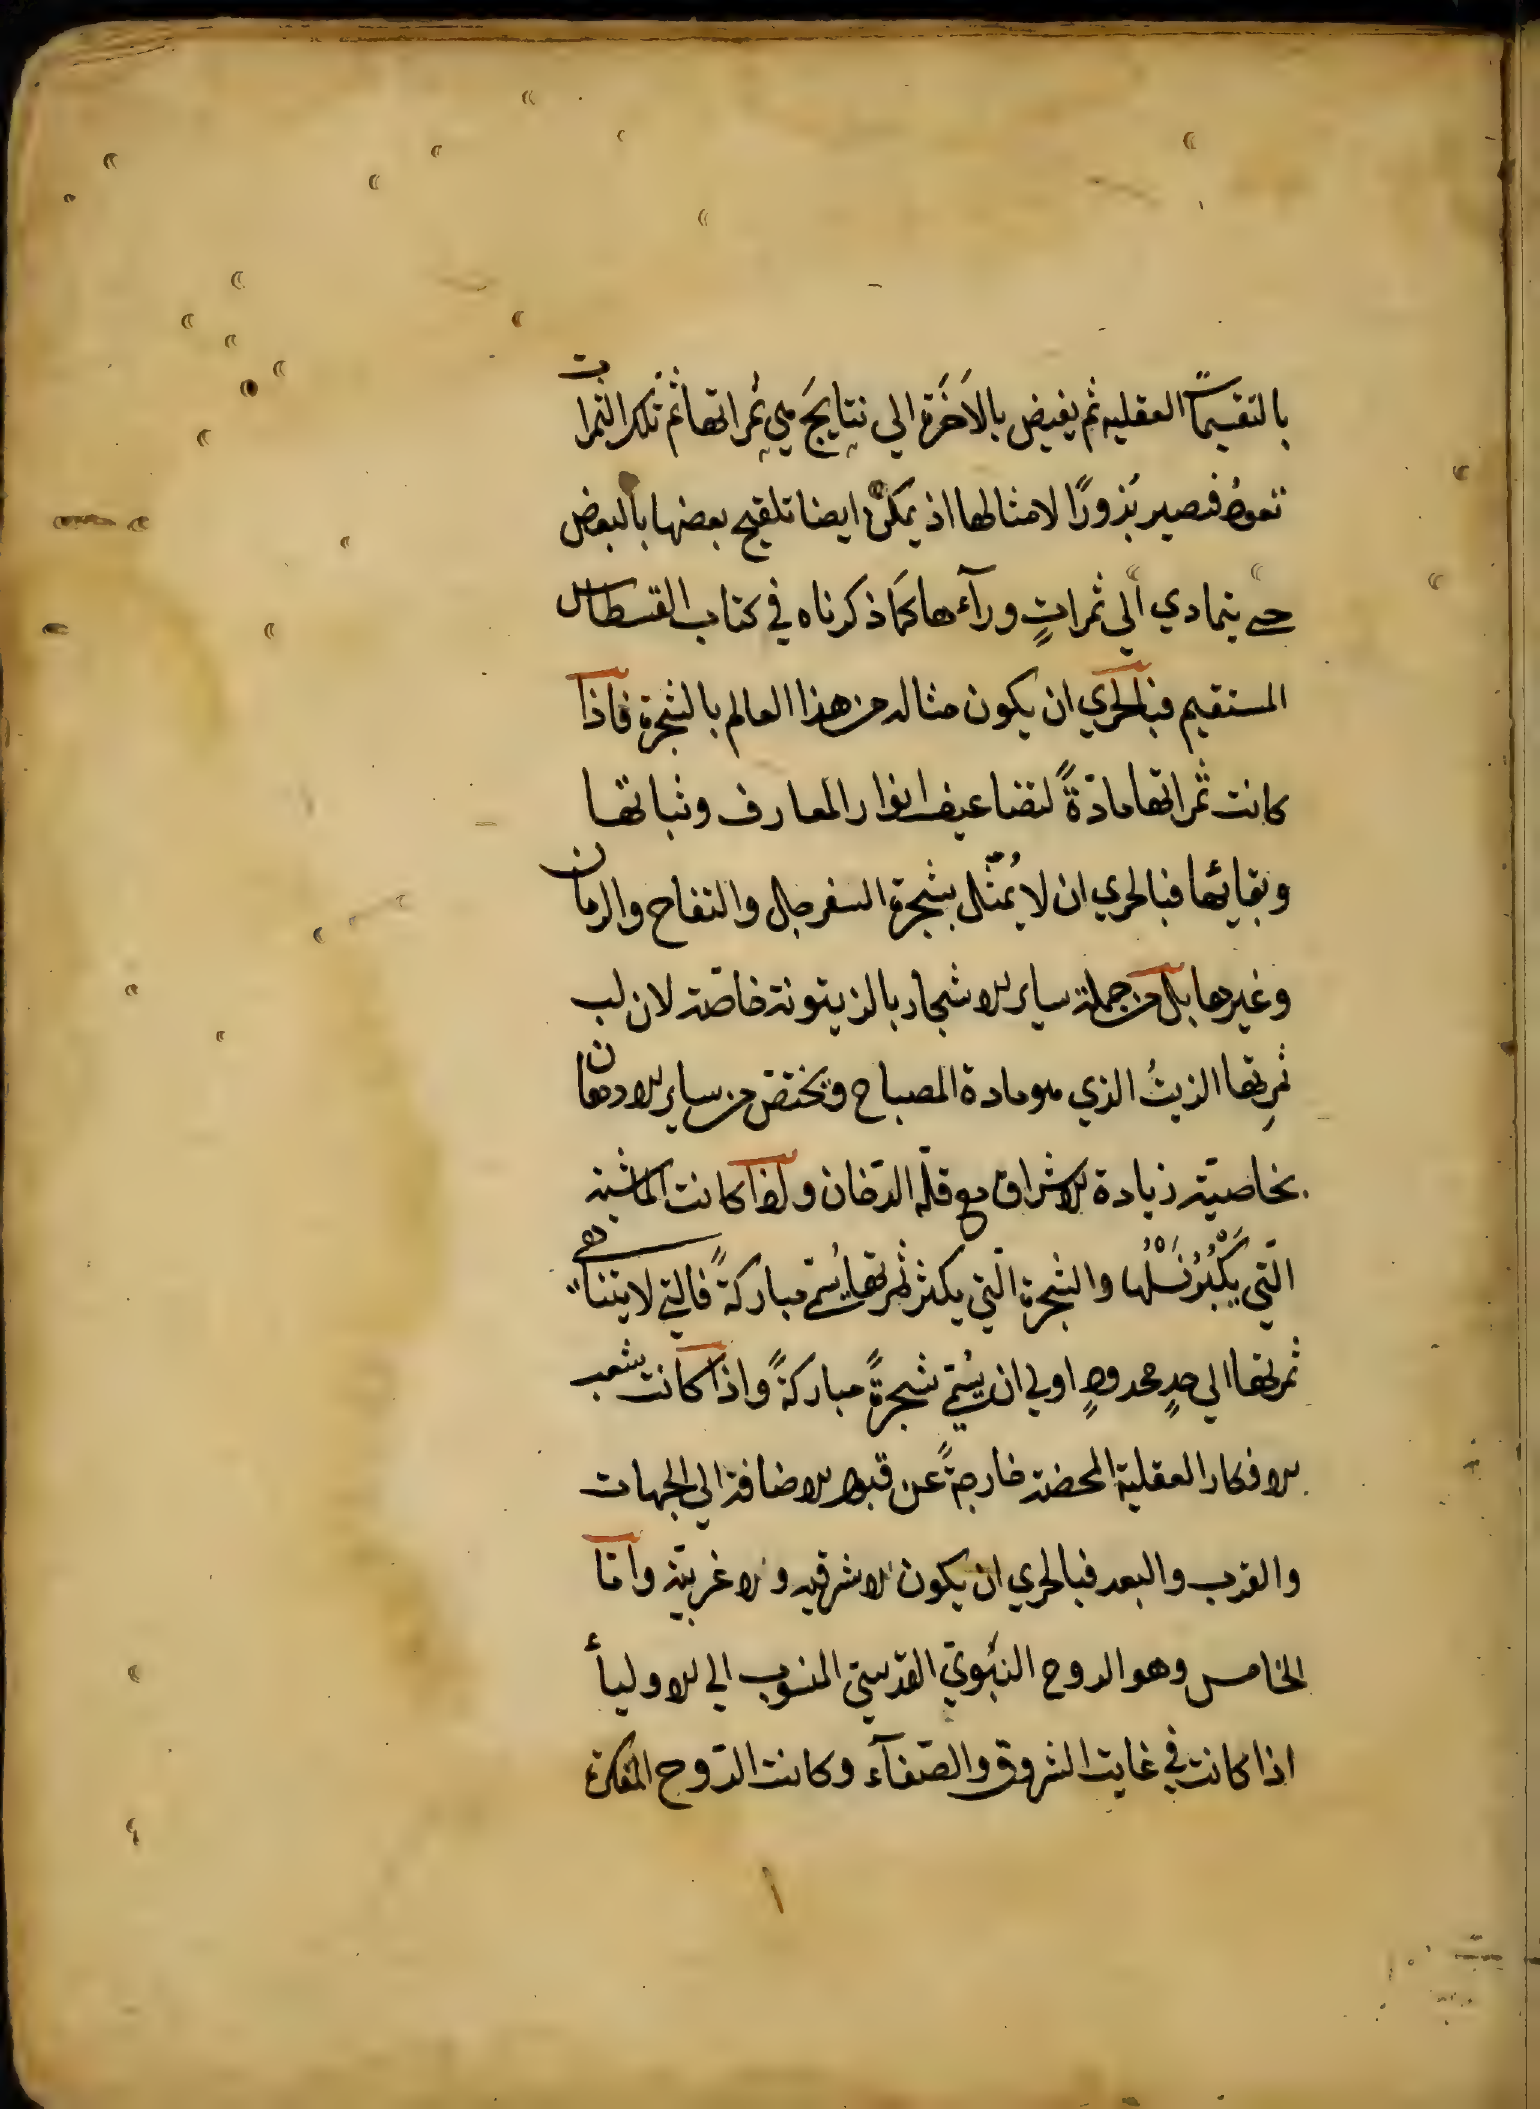 بالتقسيمات العقليه ثم يفيض بالاَخَرَة الي نتايجَ هي ثمراتها ثم تلك الثمرات
تعودُ فتصير بُذورًا لامثالها اذ يمكن ايضا تلقيح بعضها بالبعض
حتي يتمادي الي ثمراتٍ ورآءها كمَا ذكرناه في كتاب القسطاس
المستقيم فبالحري ان يكون مثاله من هذا العالم بالشجرة فاذا
كانت ثمراتها مادّةً لتضاعيف انوار المعارف وثباتها
وبقائها فبالحري ان لا يُمثّل بشجرة السفرجل والتفاح والرمان
وغيرها بل من جملة ساير الاشجار بالزيتونة خاصّة لان لب
ثمرِتها الزيتُ الذي هو مادة المصباح ويختصّ من ساير الادهان
بخاصيّة زيادة الاشراق مع قلّة الدّخان واذا كانت الماشية
الّتي يَكْبُرُ نَسْلُها والشجرة الّتي يكثر ثمرتها يُسمّي مباركةً فالتي لا يتناهي
ثمرتها الي حدٍ محدودٍ اولي ان يُسمّي شجرةً مباركةً واذا كانت شعب
الافكار العقلية المحضة خارجةً عن قبول الاضافة الي الجهات
والقرب والبعد فبالحري ان يكون لا شرقيه ولا غربيّة وامّا
الخامس وهو الروح النبَويّ القدسيّ المنسوب الي الاولياء
اذا كانت في غايت الشروق والصّفآء وكانت الرّوح المفكرة